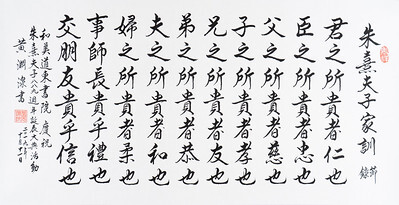 朱熹夫子家訓 節錄
君之所貴者仁也
臣之所貴者忠也
父之所貴者慈也
子之所貴者孝也
兄之所貴者友也
弟之所貴者恭也
夫之所貴者和也
婦之所貴者柔也
事師長貴乎禮也
交朋友貴乎信也
和美道東書院 慶祝
朱熹夫子八八九週年誕辰大典活動
黃淵澤書